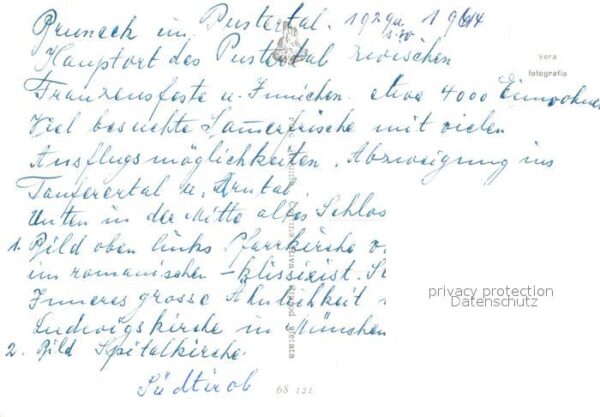 Bruneck im Pustertal. 1929 u. 1964
Hauptort des Pustertal zwischen
Franzensfeste u. Innichen. etwa 4000 Einwohner
Viel besuchte Somerfrische mit vielen
Ausflugsmöglichkeiten. Abzweigung ins
Tauferertal u. Arntal.
Unten in der Mitte altes Schlos
1. Bild oben links Pfarrkirche
im romanischen -
Inneres grosse Ähnlichkeit
Ludwigskirche in München
2. Bild Spitalkirche.
Südtirol
68 121
Vera
fotografia
privacy protection
Datenschutz